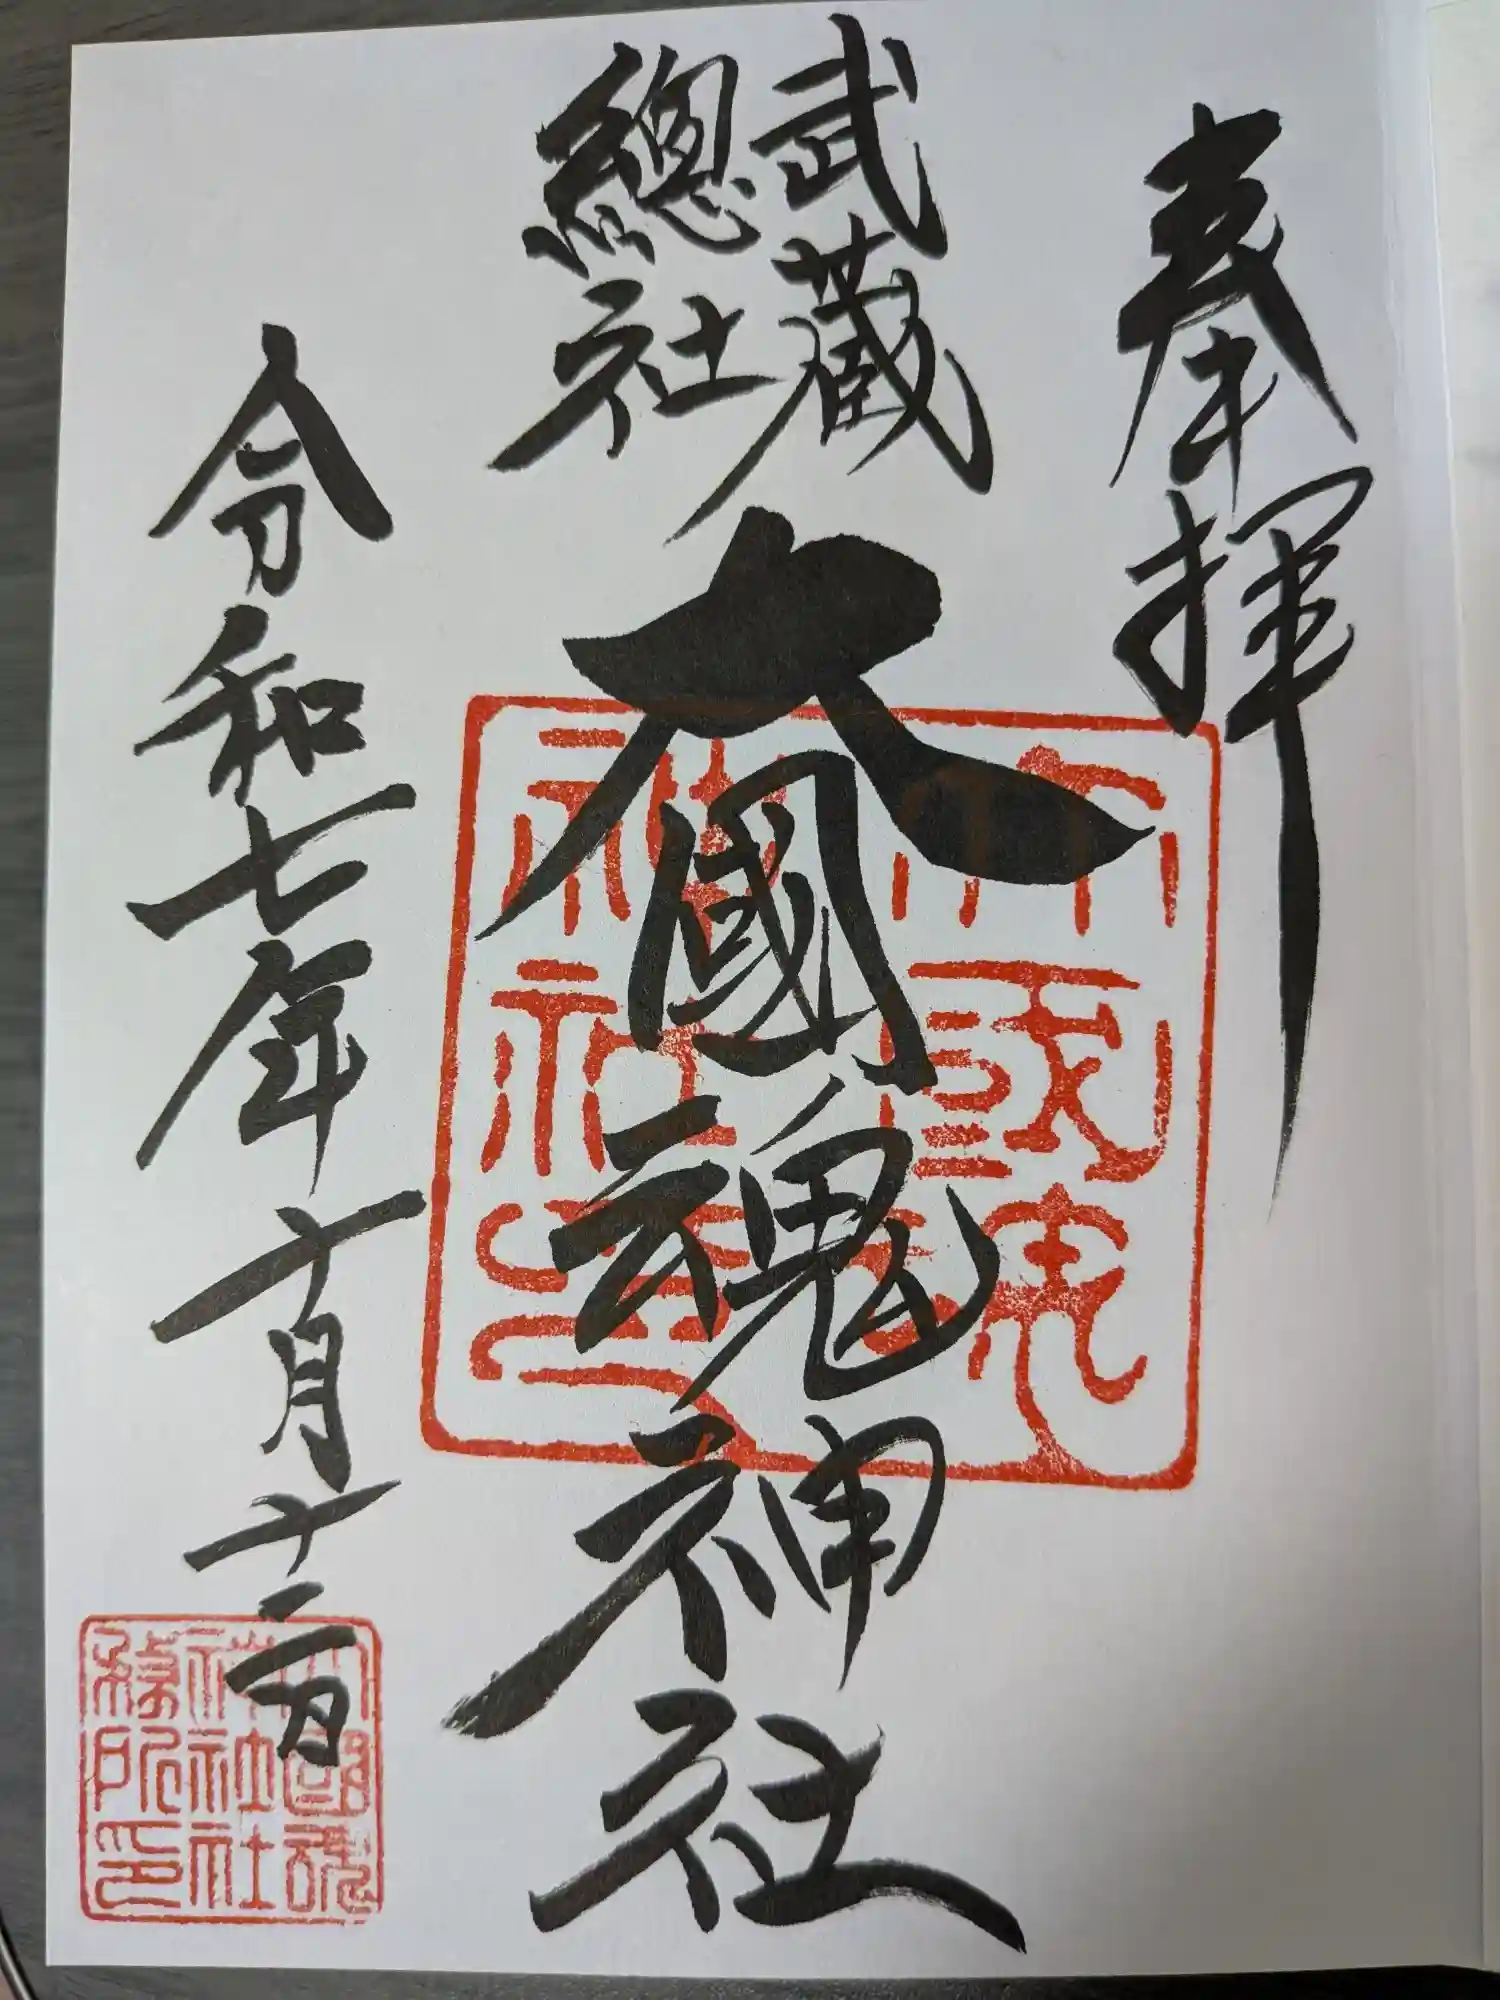 奉拝
武蔵
總社
大國魂神社
令和七年十月十二日
大國魂
神社社
務所印